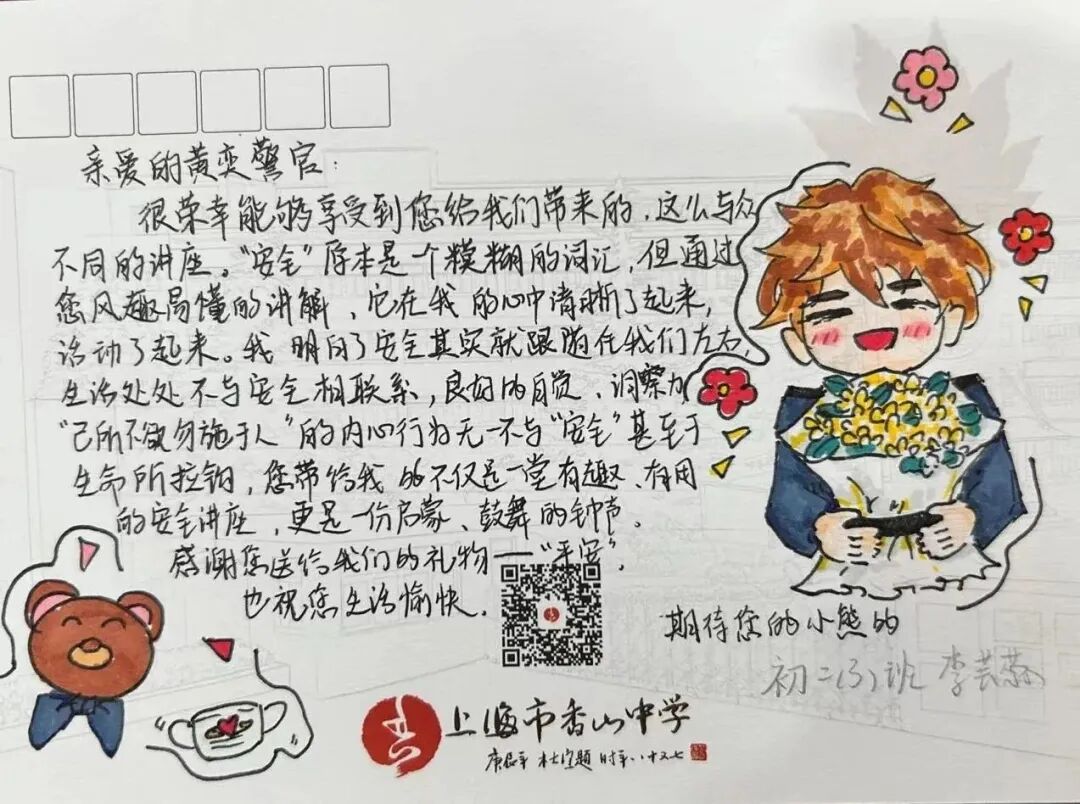 亲爱的黄奕警官：
很荣幸能够享受到您给我们带来的，这么与众
不同的讲座。“安全”原本是一个模糊的词汇，但通过
您风趣易懂的讲解，它在我的心中清晰了起来，
活动了起来。我明白了安全其实就跟随在我们左右，
生活处处不与安全相联系，良好的自觉、洞察力
“己所不欲勿施于人”的内心行为无一不与“安全”甚至于
生命所拉钩，您带给我的不仅是一堂有趣、有用
的安全讲座，更是一份启蒙、鼓舞的钟声。
感谢您送给我们的礼物——“平安”，
也祝您生活愉快．
期待您的小熊的
初二(3)班 李芸
上海市香山中学